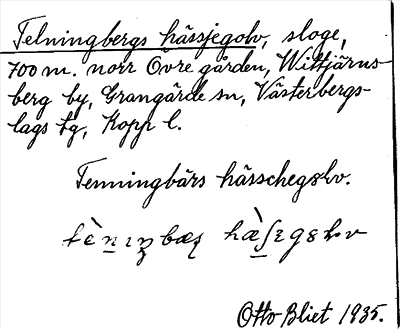 Telningbergs hässjegolv, sloge,
700 m. norr Övre gården, Wittjärns-
berg by, Grangärde sn, Västerbergs-
lags tg, Kopp l.
Tenningbärs hässchegolv.
Otto Bliet 1935.